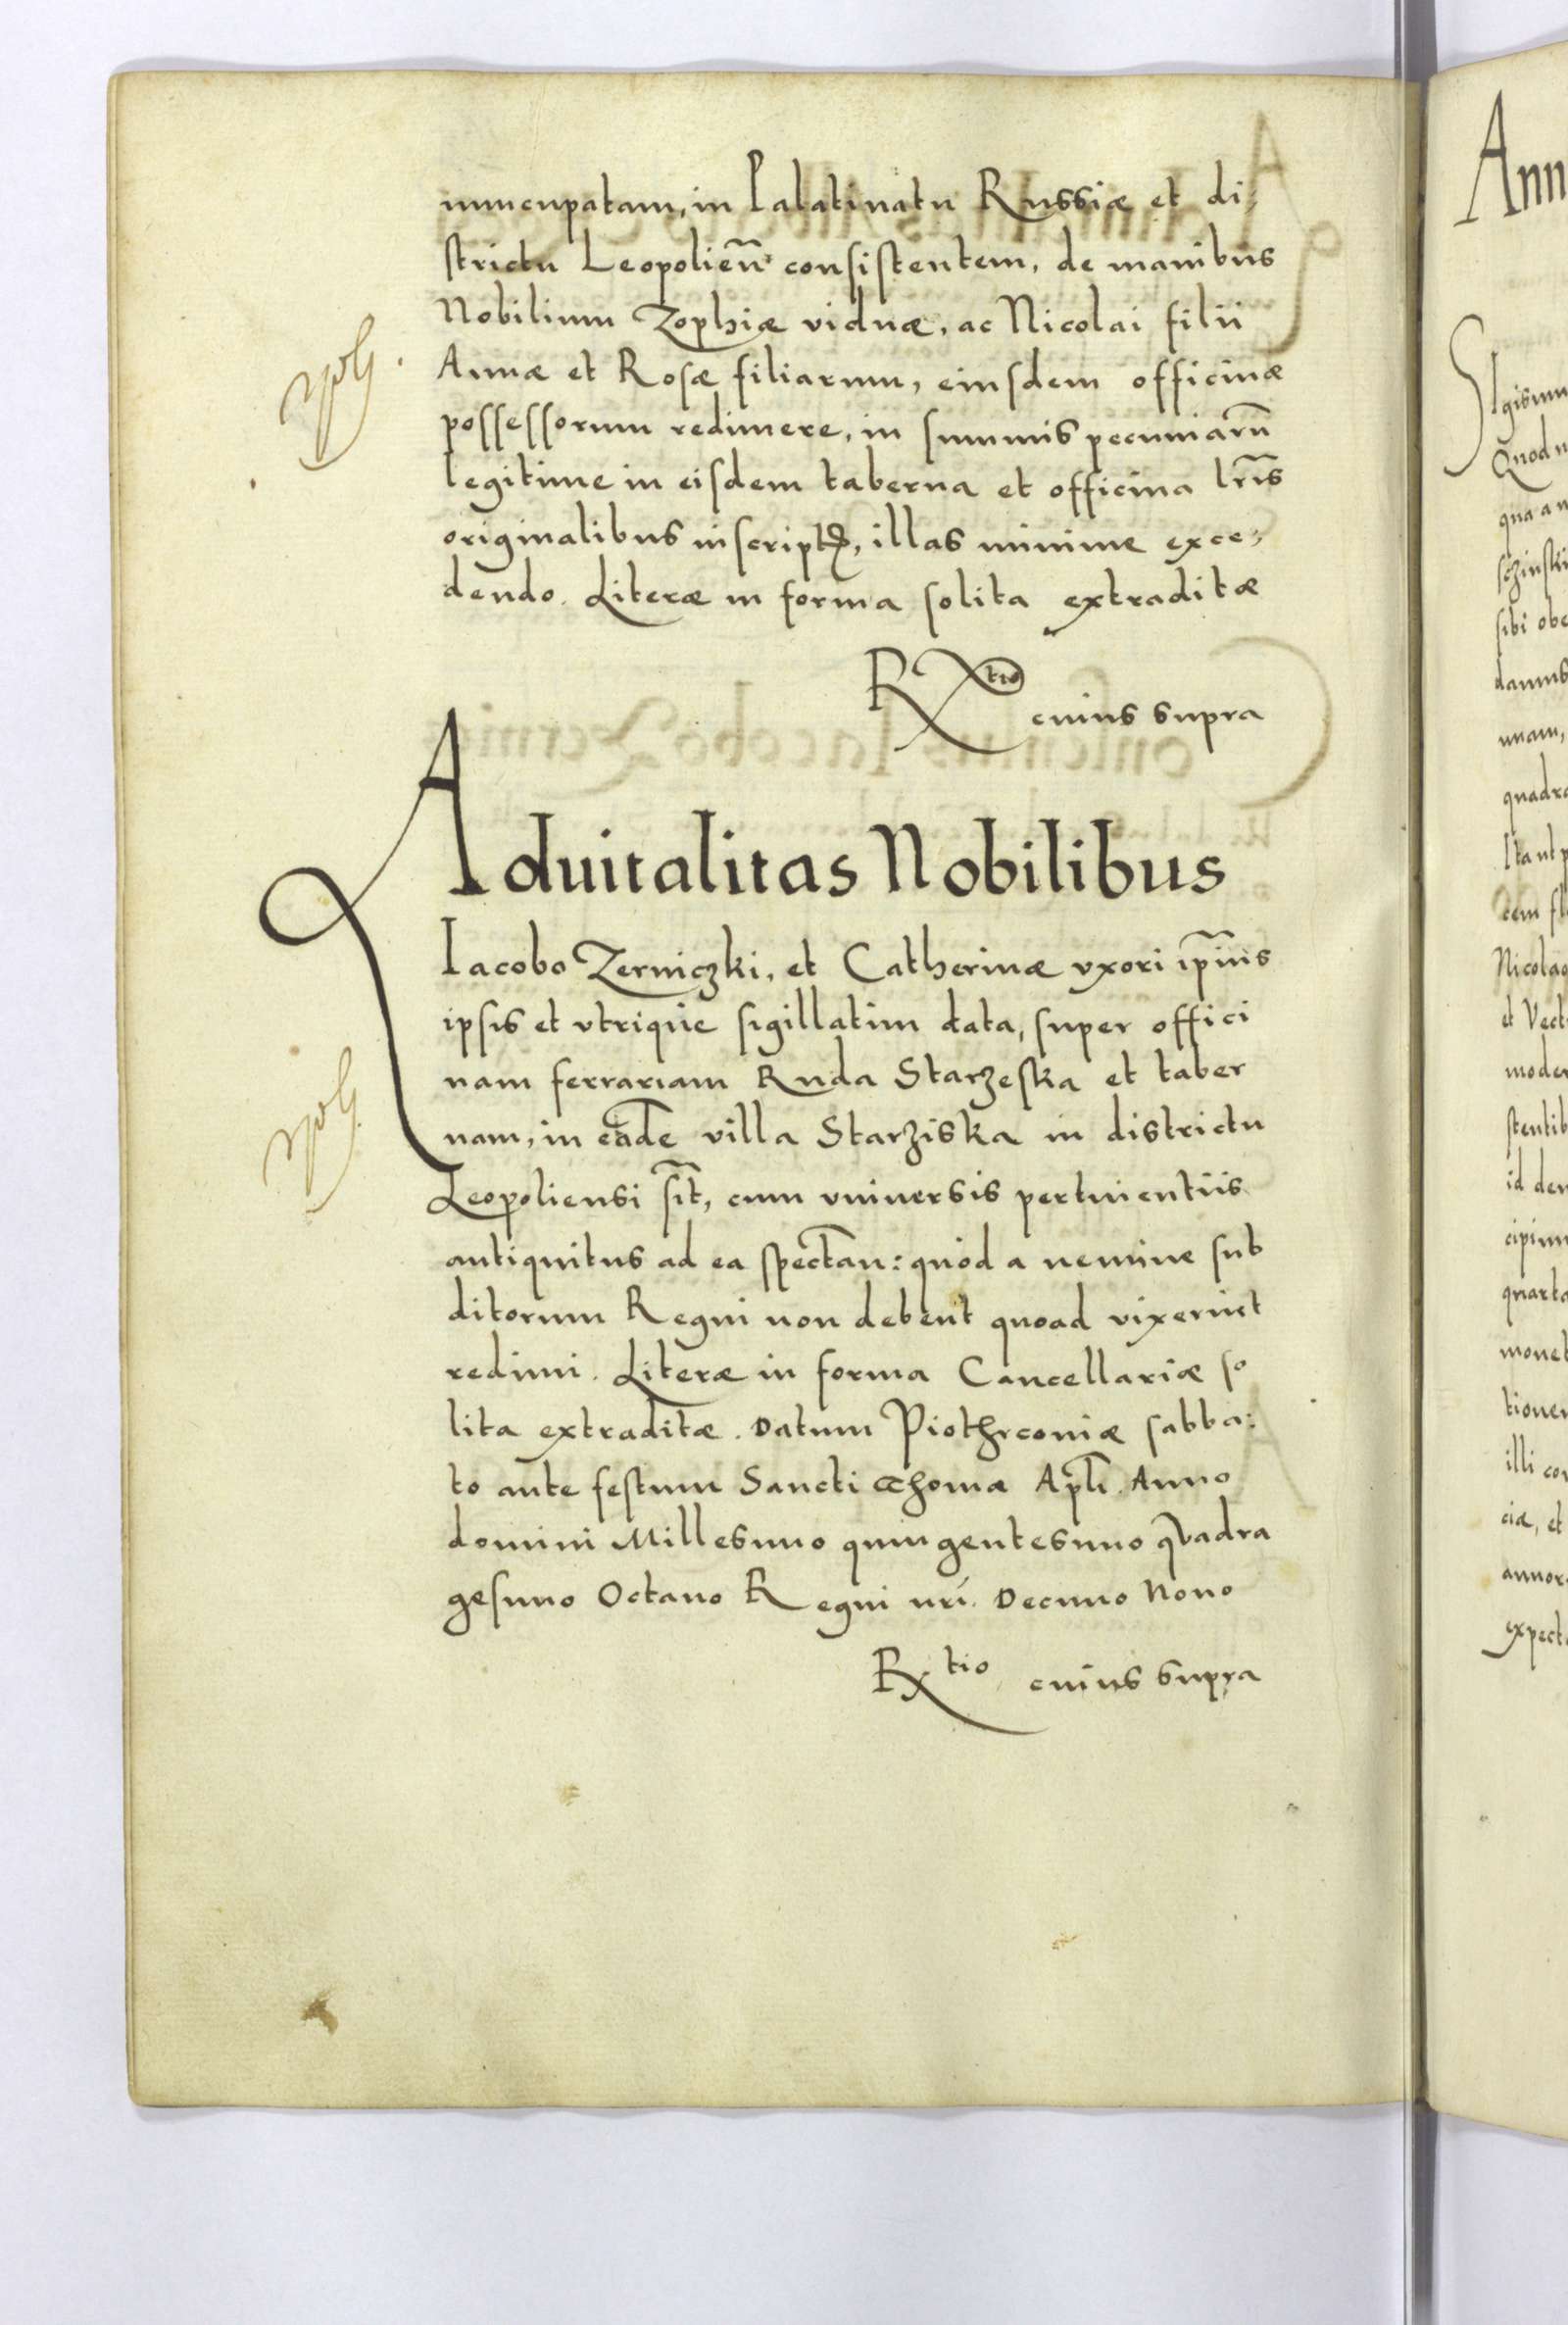 nuncupatam, in Palatinatu Russiæ et di,
strictu Leopolien̄ consistentem, de manibus
Nobilium Zophiæ viduæ, ac Nicolai filii
Annæ et Rosæ filiarum, eiusdem officinæ
possessorum redimere, in summis pecuniarū
legitime in eisdem taberna et officina lr̄is
originalibus inscriptꝭ, illas minime exce,
dendo. Literæ in forma solita extraditæ
Rtio cuius supra
Aduitalitas Nobilibus
Iacobo Zerniczki, et Catherinæ vxori ip̄ius
ipsis et vtrique sigillatim data, super offici
nam ferrariam Ruda Starzeska et taber
nam, in eadē villa Starziska in districtu
Leopoliensi sit̄, cum vniuersis pertinentiis
antiquitus ad ea spectan: quod a nemine sub
ditorum Regni non debent quoad vixerint
redimi. Literæ in forma Cancellariæ so
lita extraditæ. Datum Piothrconiæ sabba:
to ante festum Sancti Thomæ Apl̄i Anno
domini Millesimo quingentesimo quadra
gesimo Octauo Regni nri. Decimo Nono
Rtio cuius supra
Ann
Sigismu
Quod n
qua a n
sczinski
sibi obe
damus
unam,
quadra
Ita ut p
Nicolao
et Vect
moder
stentib
id den
cipium
quarta
monet
tionem
illi con
ciæ, et
annor
expecta